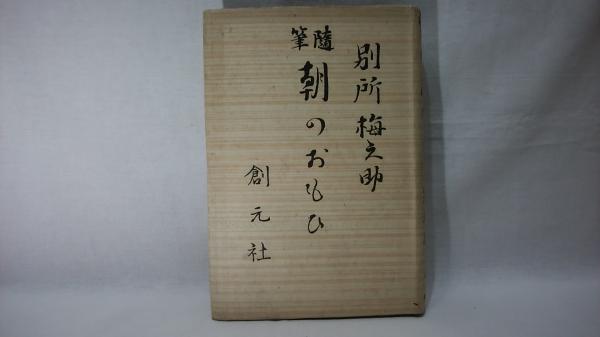 別所梅之助
隨筆
朝のおもひ
創元社